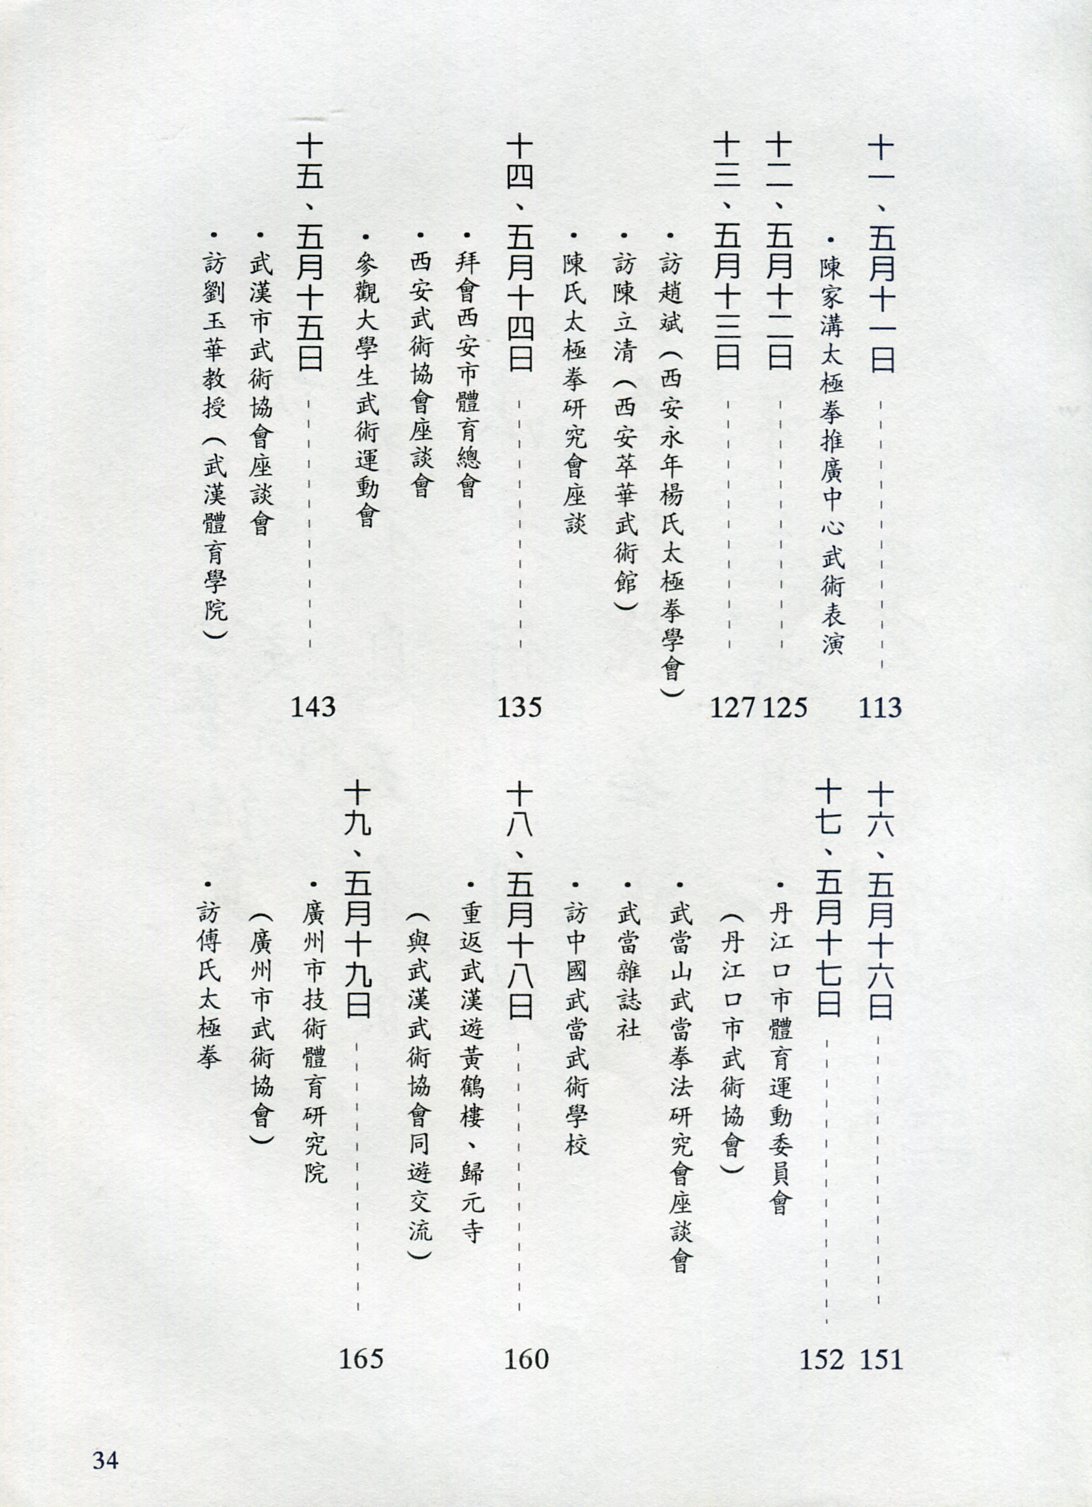 十一、五月十一日 113
・陳家溝太極拳推廣中心武術表演
十二、五月十二日 125
十三、五月十三日 127
・訪趙斌（西安永年楊氏太極拳學會）
・訪陳立清（西安萃華武術館）
・陳氏太極拳研究會座談
十四、五月十四日 135
・拜會西安市體育總會
・西安武術協會座談會
・參觀大學生武術運動會
十五、五月十五日 143
・武漢市武術協會座談會
・訪劉玉華教授（武漢體育學院）
十六、五月十六日 151
十七、五月十七日 152
・丹江口市體育運動委員會
（丹江口市武術協會）
・武當山武當拳法研究會座談會
・武當雜誌社
・訪中國武當武術學校
十八、五月十八日 160
・重返武漢遊黃鶴樓、歸元寺
（與武漢武術協會同遊交流）
十九、五月十九日 165
・廣州市技術體育研究院
（廣州市武術協會）
・訪傅氏太極拳
34